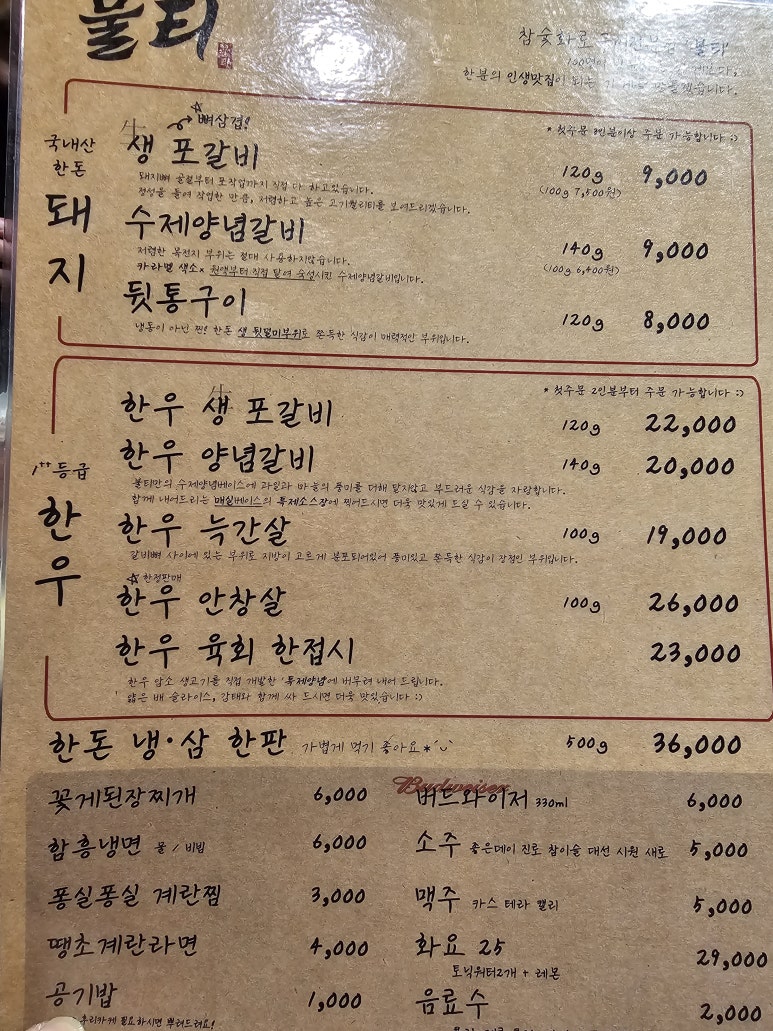 불티
참숯화로
한분의 인생맛집이 되는
국내산
한돈
돼
지
뼈삼겹!
* 첫주문 3인분이상 주문 가능합니다 :)
生
생 포갈비 120g 9,000
(100g 7,500원)
돼지뼈 골절부터 포작업까지 직접 다 하고있습니다.
정성을 들여 작업한 만큼, 저렴하고 높은 고기퀄리티를 보여드리겠습니다.
수제양념갈비 140g 9,000
(100g 6,400원)
저렴한 목전지 부위는 절대 사용하지않습니다.
카라멜 색소x 원액부터 직접 달여 숙성시킨 수제양념갈비입니다.
뒷통구이 120g 8,000
냉동이 아닌 찐! 한돈 생 뒷덜미부위로 쫀득한 식감이 매력적인 부위입니다.
1++등급
한
우
* 첫주문 2인분부터 주문 가능합니다 :)
生
한우 생 포갈비 120g 22,000
한우 양념갈비 140g 20,000
불티만의 수제양념베이스에 과일과 마늘의 풍미를 더해 달지않고 부드러운 식감을 자랑합니다.
함께 내어드리는 매실베이스의 특제소스장에 찍어드시면 더욱 맛있게 드실 수 있습니다.
한우 늑간살 100g 19,000
갈비뼈 사이에 있는 부위로 지방이 고르게 분포되어있어 풍미있고 쫀득한 식감이 장점인 부위입니다.
☆ 한정판매
한우 안창살 100g 26,000
한우 육회 한접시 23,000
한우 암소 생고기를 직접 개발한 '특제양념'에 버무려 내어 드립니다.
얇은 배 슬라이스, 감태와 함께 싸 드시면 더욱 맛있습니다 :)
한돈 냉·삼 한판 가볍게 먹기 좋아요 500g 36,000
꽃게된장찌개 6,000
함흥냉면 물 / 비빔 6,000
퐁실퐁실 계란찜 3,000
땡초계란라면 4,000
공기밥 1,000
후리카케 필요하시면 뿌려드려요!
Budweiser
버드와이저 330ml 6,000
소주 좋은데이 진로 참이슬 대선 시원 새로 5,000
맥주 카스 테라 켈리 5,000
화요 25 29,000
토닉워터2개 + 레몬
음료수 2,000